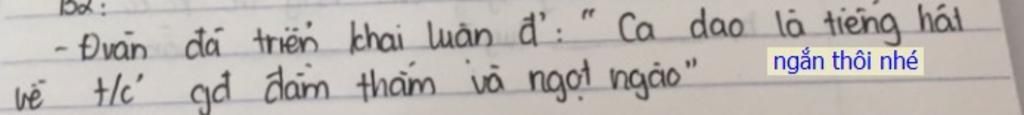 B2:
- Đvăn đã triển khai luận đ': " Ca dao là tiếng hát
về t/c' gđ đằm thắm và ngọt ngào"
ngắn thôi nhé